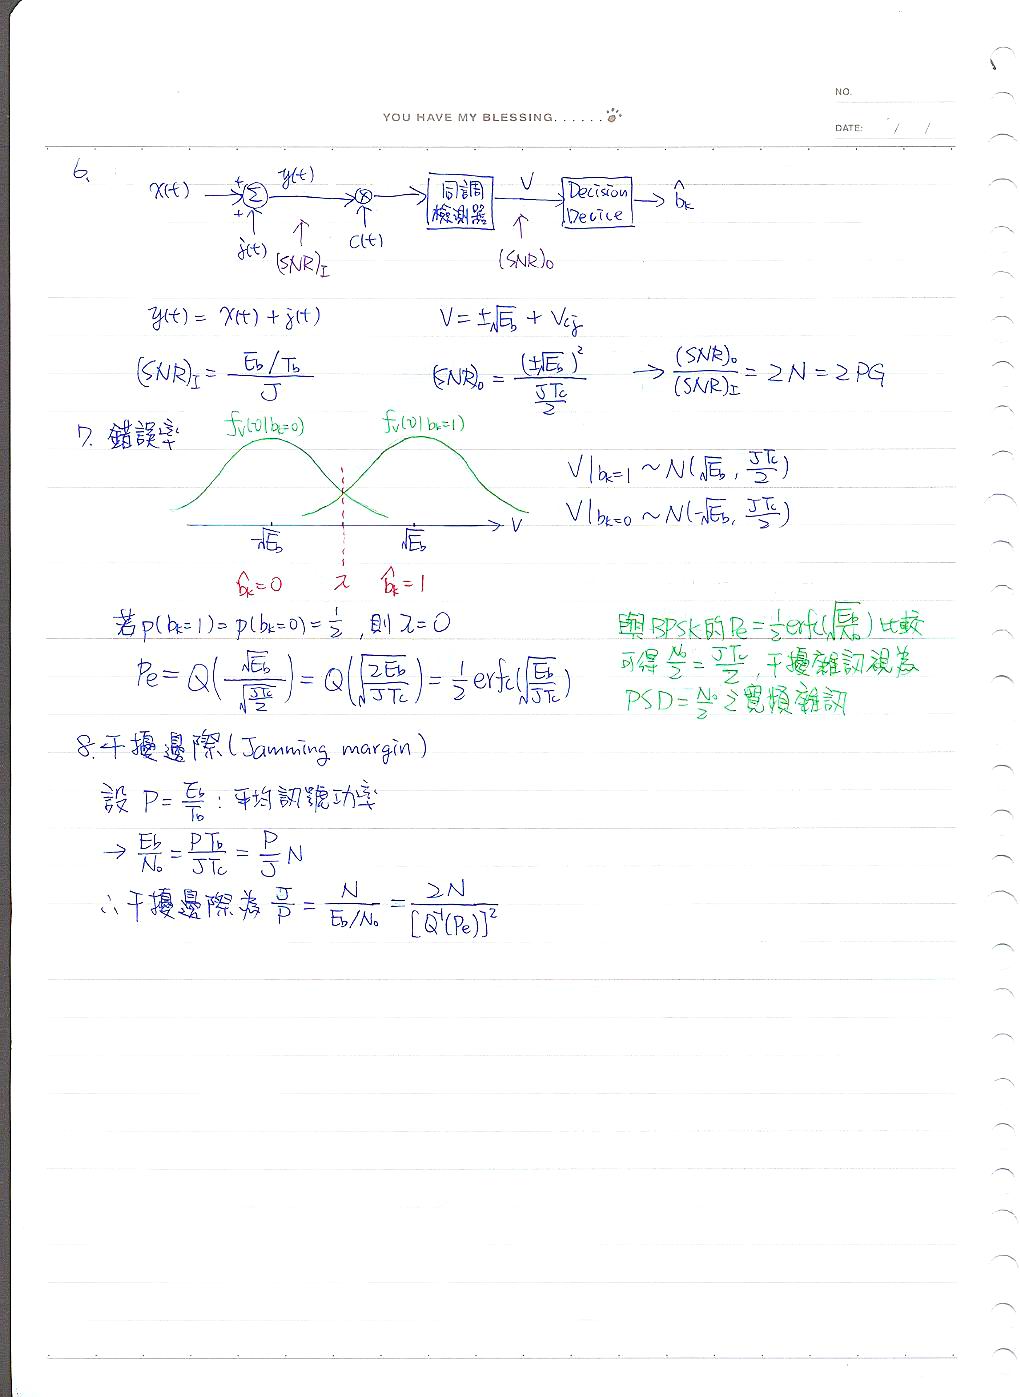 NO.
YOU HAVE MY BLESSING......
DATE: / /
6.
x(t) + + Σ y(t) × 同調檢測器 V Decision Device b̂ₖ
j(t) (SNR)_I c(t) (SNR)_O
y(t) = x(t) + j(t)
V = ±√E_b + V_cj
(SNR)_I = (E_b/T_b)/J
(SNR)_O = (±√E_b)²/(JT_c/2) → (SNR)_O/(SNR)_I = 2N = 2PG
7. 錯誤率
f_V(v|bₖ=0) f_V(v|bₖ=1)
V|bₖ=1 ~ N(√E_b, JT_c/2)
V|bₖ=0 ~ N(-√E_b, JT_c/2)
-√E_b √E_b V
b̂ₖ=0 λ b̂ₖ=1
若p(bₖ=1)=p(bₖ=0)=1/2,則λ=0
Pe = Q(√E_b/√(JT_c/2)) = Q(√(2E_b/JT_c)) = 1/2 erfc(√(E_b/JT_c))
與BPSK的Pe=1/2 erfc(√(E_b/N₀))比較
可得N₀/2=JT_c/2,干擾雜訊視為
PSD=N₀/2之寬頻雜訊
8.干擾邊際(Jamming margin)
設 P=E_b/T_b:平均訊號功率
→ E_b/N₀ = PT_b/JT_c = P/J N
∴干擾邊際為 J/P = N/(E_b/N₀) = 2N/[Q⁻¹(Pe)]²